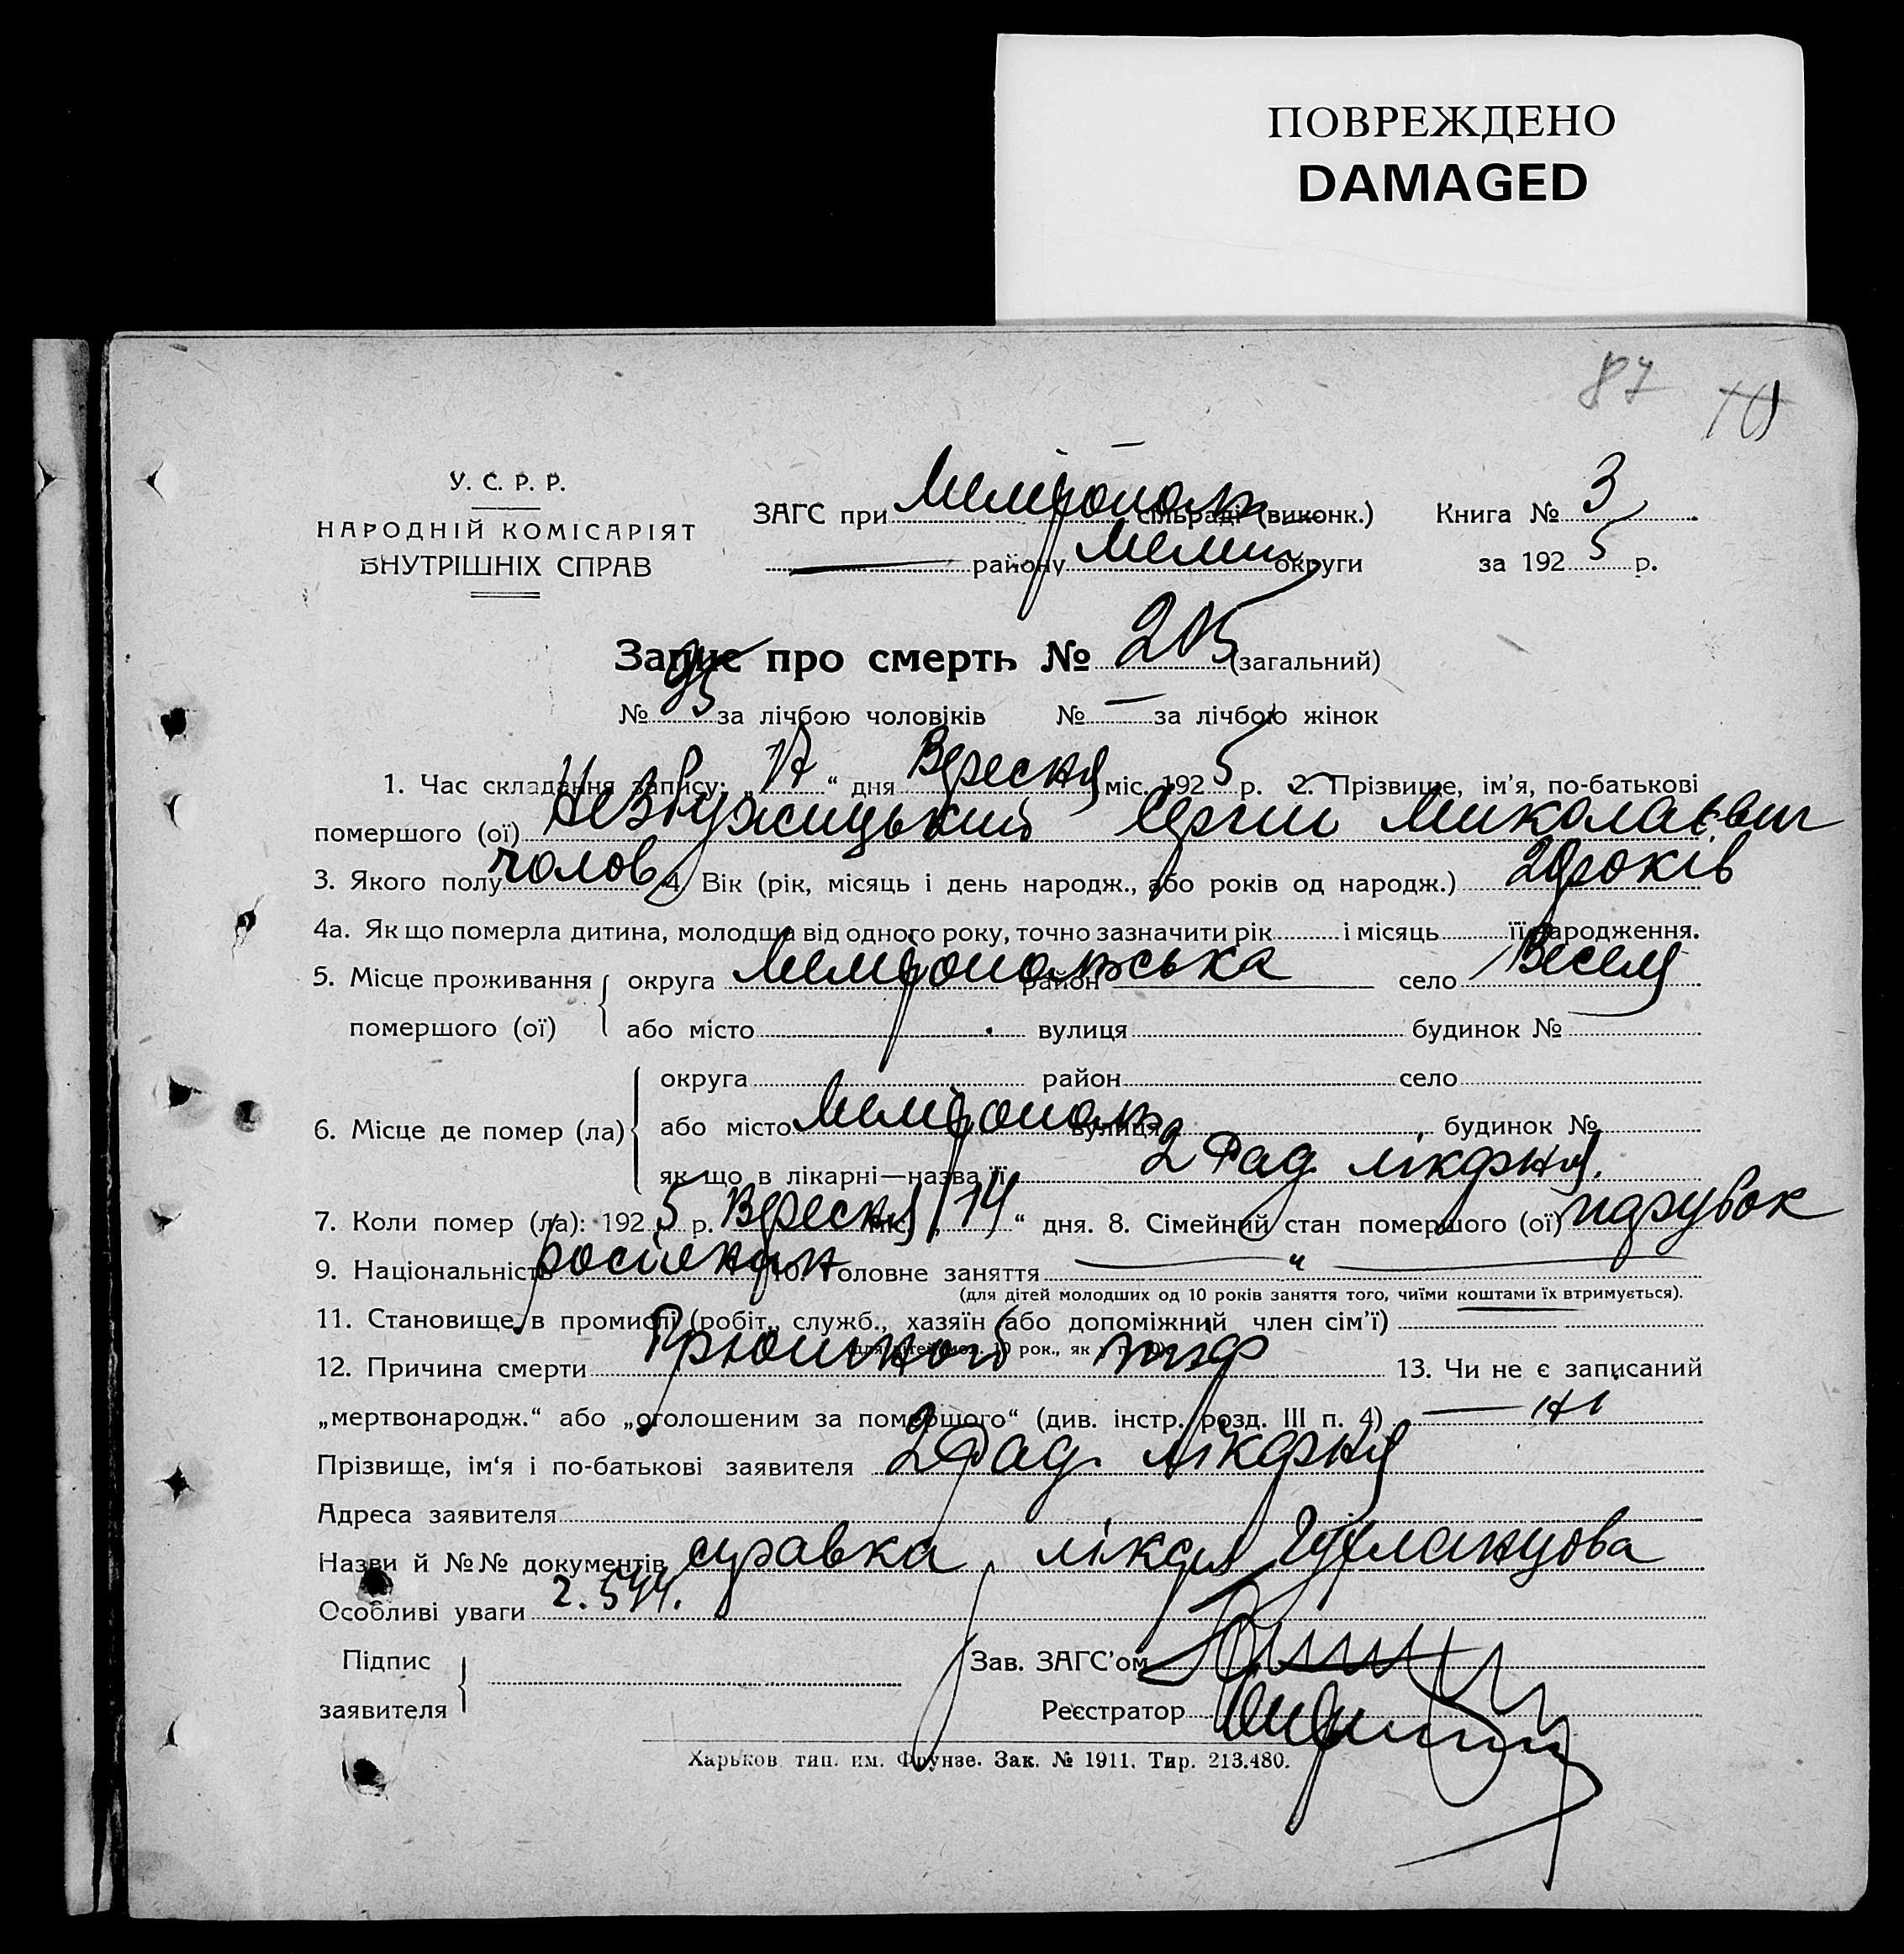 ПОВРЕЖДЕНО
DAMAGED
87
У. С. Р. Р.
НАРОДНІЙ КОМІСАРІЯТ
ВНУТРІШНІХ СПРАВ
ЗАГС при Мелітополь сільраді (виконк.)
району Мелит округи
Книга № 3
за 1925 р.
Запис про смерть № 205 (загальний)
№ 95 за лічбою чоловіків № — за лічбою жінок
1. Час складання запису: „17“ дня Вересня міс. 1925 р. 2. Прізвище, ім’я, по-батькові
помершого (ої) Сергій Миколаєвич
3. Якого полу чолов 4. Вік (рік, місяць і день народж., або років од народж.) 20 років
4а. Як що померла дитина, молодша від одного року, точно зазначити рік і місяць її народження.
5. Місце проживання помершого (ої) округа Мелітопольська район — село Веселе
або місто вулиця будинок №
6. Місце де помер (ла) округа район село
або місто Мелітополь вулиця будинок №
як що в лікарні—назва її 2 Рад лікарня.
7. Коли помер (ла): 1925 р. Вересня міс. „14“ дня. 8. Сімейний стан помершого (ої) парубок
9. Національність росіянин 10. Головне заняття — „ —
(для дітей молодших од 10 років заняття того, чиїми коштами їх втримується).
11. Становище в промислі (робіт., служб., хазяїн або допоміжний член сім’ї) —
12. Причина смерти тиф 13. Чи не є записаний
„мертвонародж.“ або „оголошеним за помершого“ (див. інстр. розд. III п. 4) — ні
Прізвище, ім‘я і по-батькові заявителя 2 Рад. лікарня
Адреса заявителя
Назви й №№ документів справка лікаря
Особливі уваги 2.544.
Підпис заявителя
Зав. ЗАГС’ом
Реєстратор
Харьков тип. им. Фрунзе. Зак. № 1911. Тир. 213.480.